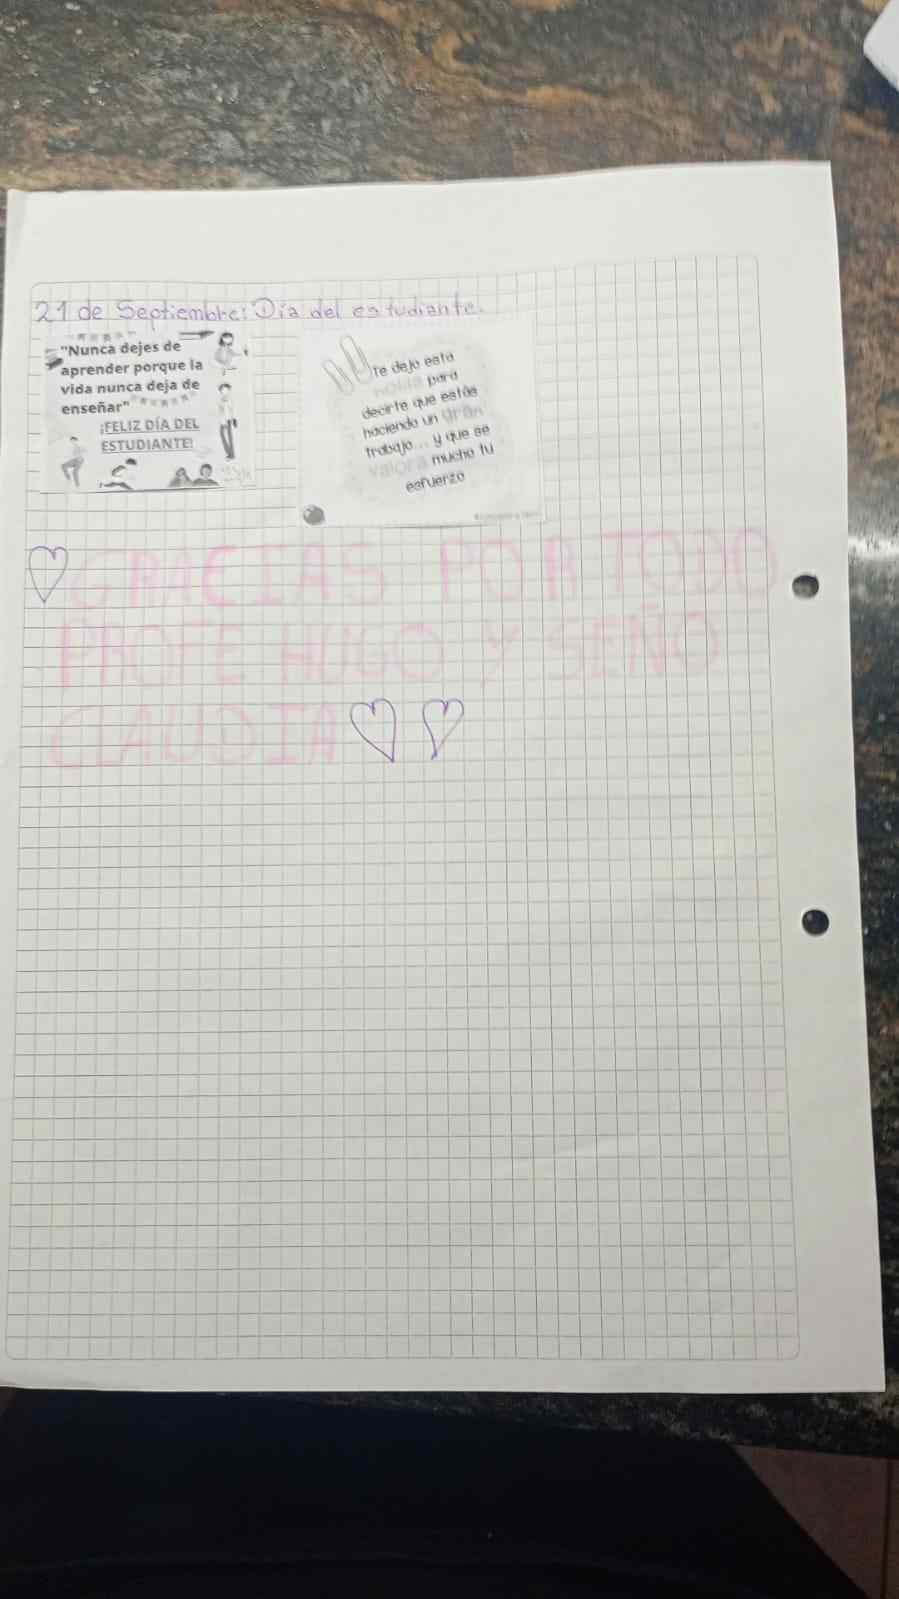 21 de Septiembre: Día del estudiante.
"Nunca dejes de
aprender porque la
vida nunca deja de
enseñar"
¡FELIZ DÍA DEL
ESTUDIANTE!
Te dejo esta
nota para
decirte que estás
haciendo un gran
trabajo... y que se
valora mucho tu
esfuerzo
GRACIAS POR TODO
PROFE HUGO Y SEÑO
CLAUDIA